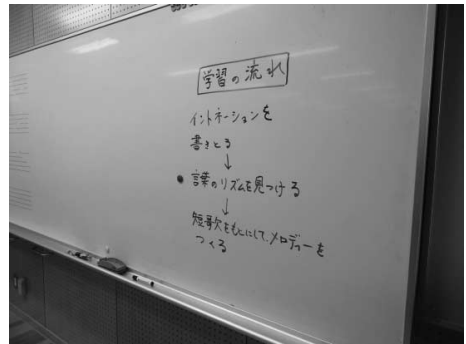 学習の流れ
イントネーションを
書きとる
↓
● 言葉のリズムを見つける
↓
短歌をもとにして、メロディーを
つくる